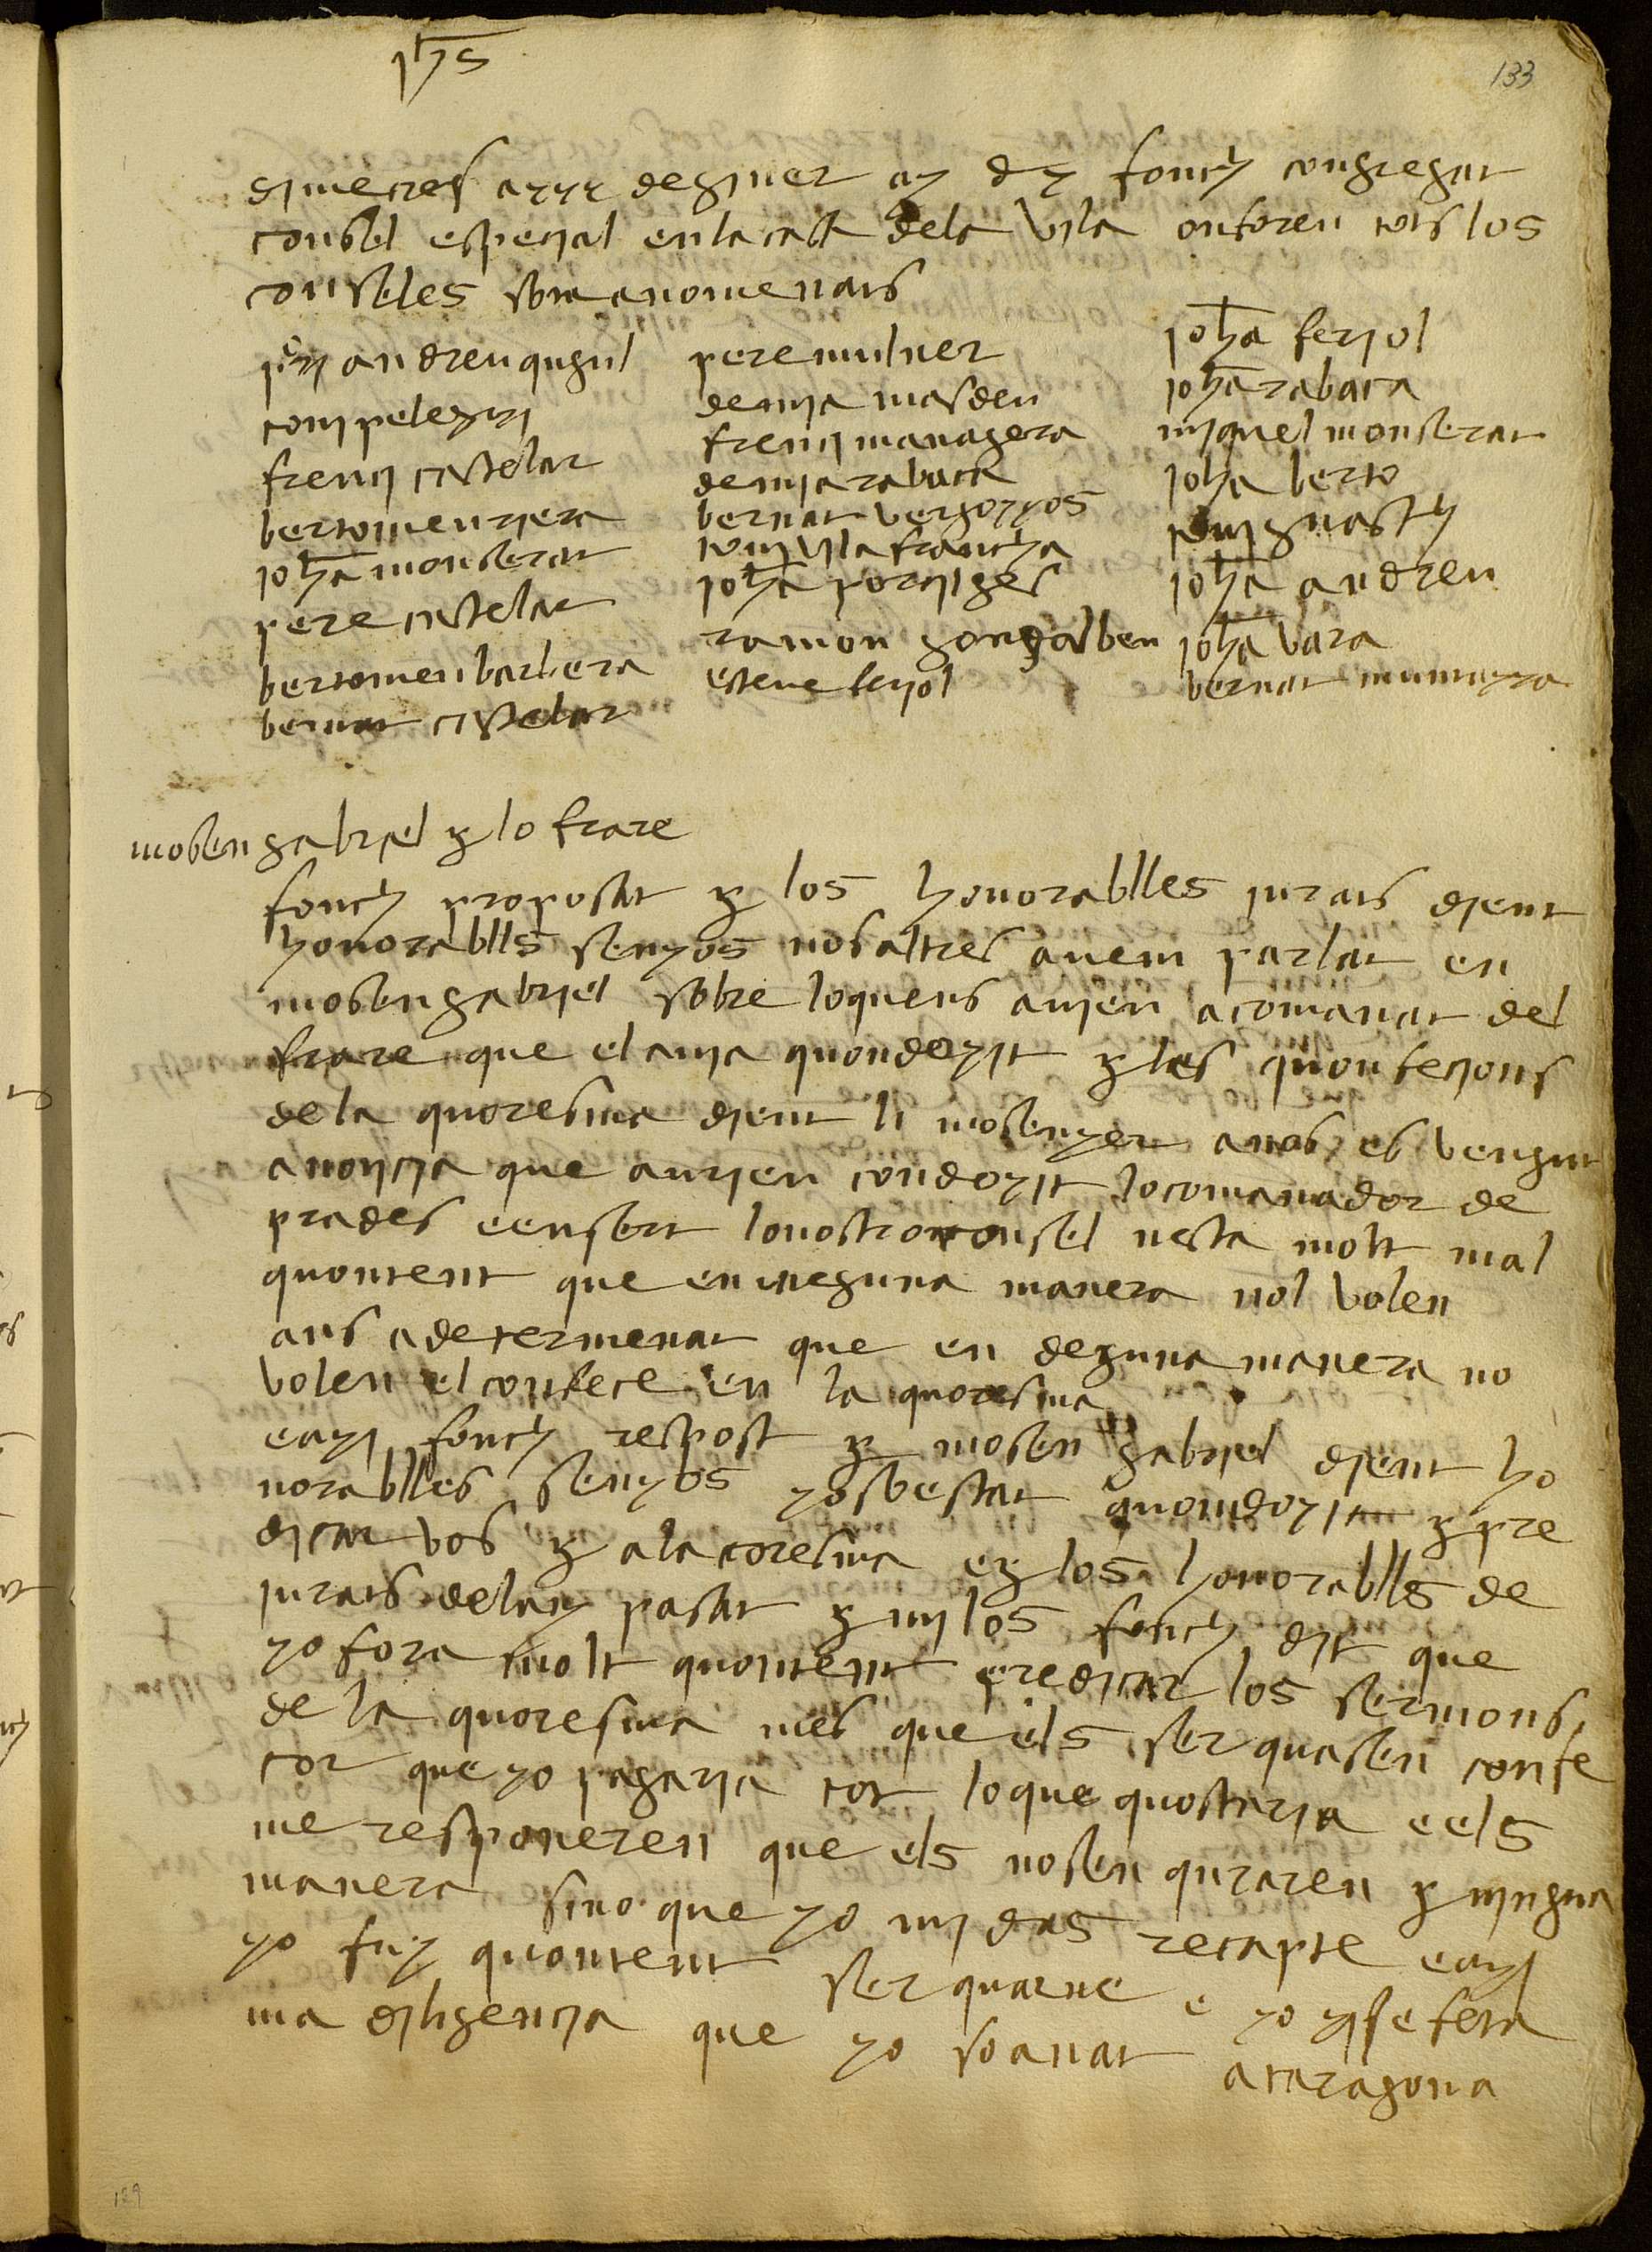 yhs
133
dimecres a xxx de giner ay dy fonch congregat
consel especial en la casa de la vila on foren tots los
conselles sotanomenats
pery andreu qugul
tomi pelegri
frenci castelar
bertomeu riera
joha monserat
pere castelar
bertomeu barbera
bernat castelar
pere mulner
demia masdeu
frenci managera
demia rabaca
bernat vergonyos
tomi vilafrancha
joha portuges
ramon gongalben
esteve feriol
joha feriol
joha rabaca
miquel monserat
joha berto
tomi guasch
joha andreu
joha vara
bernat muntayra
mosen gabriel y lo frare
fonch proposat p los honorablles jurats dient
honorablls senyos nosaltres avem parlat en
mosen gabriel sobre lo quens avien acomanat del
frare que el avia quondoyit p les quonfecions
de la quoresma dient li mosenyer a nos es vengut
a noticia que aurien condoyit lo comanador de
prades e en sert lo nostro consel nesta molt mal
quontent que en neguna manera nol volen
ans a determenat que en deguna manera no
volen el confece en la quoresma
e ayi fonch respost p mosen gabriel dient ho
norablles senyos yo so estat quondoyit p pre
dicar vos p a la coresma e p los honorablls de
jurats de lany pasat p mi los fonch dit que
yo fora molt quontent predicar los sermons
de la quoresma mes que els serquasen confe
cor que yo pagaria tot lo que quostaria e els
me responeren que els nosen quraren p ninguna
manera sino que yo mi das recapte e ayi
yo fuy quontent serquarne e yo yse feta
ma diligencia que yo so anat a taragona
129